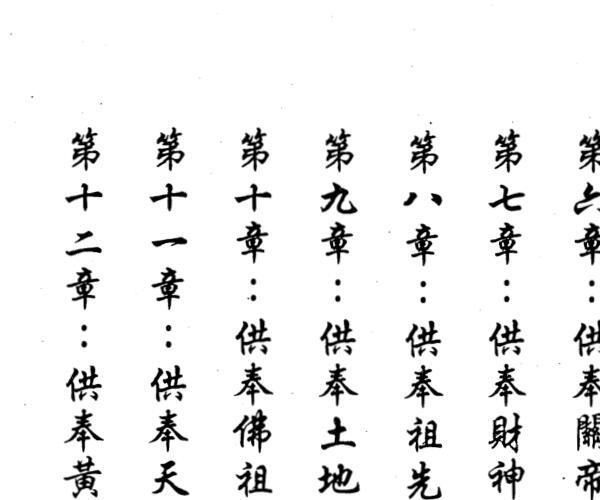 第六章：供奉關帝
第七章：供奉財神
第八章：供奉祖先
第九章：供奉土地
第十章：供奉佛祖
第十一章：供奉天
第十二章：供奉黃